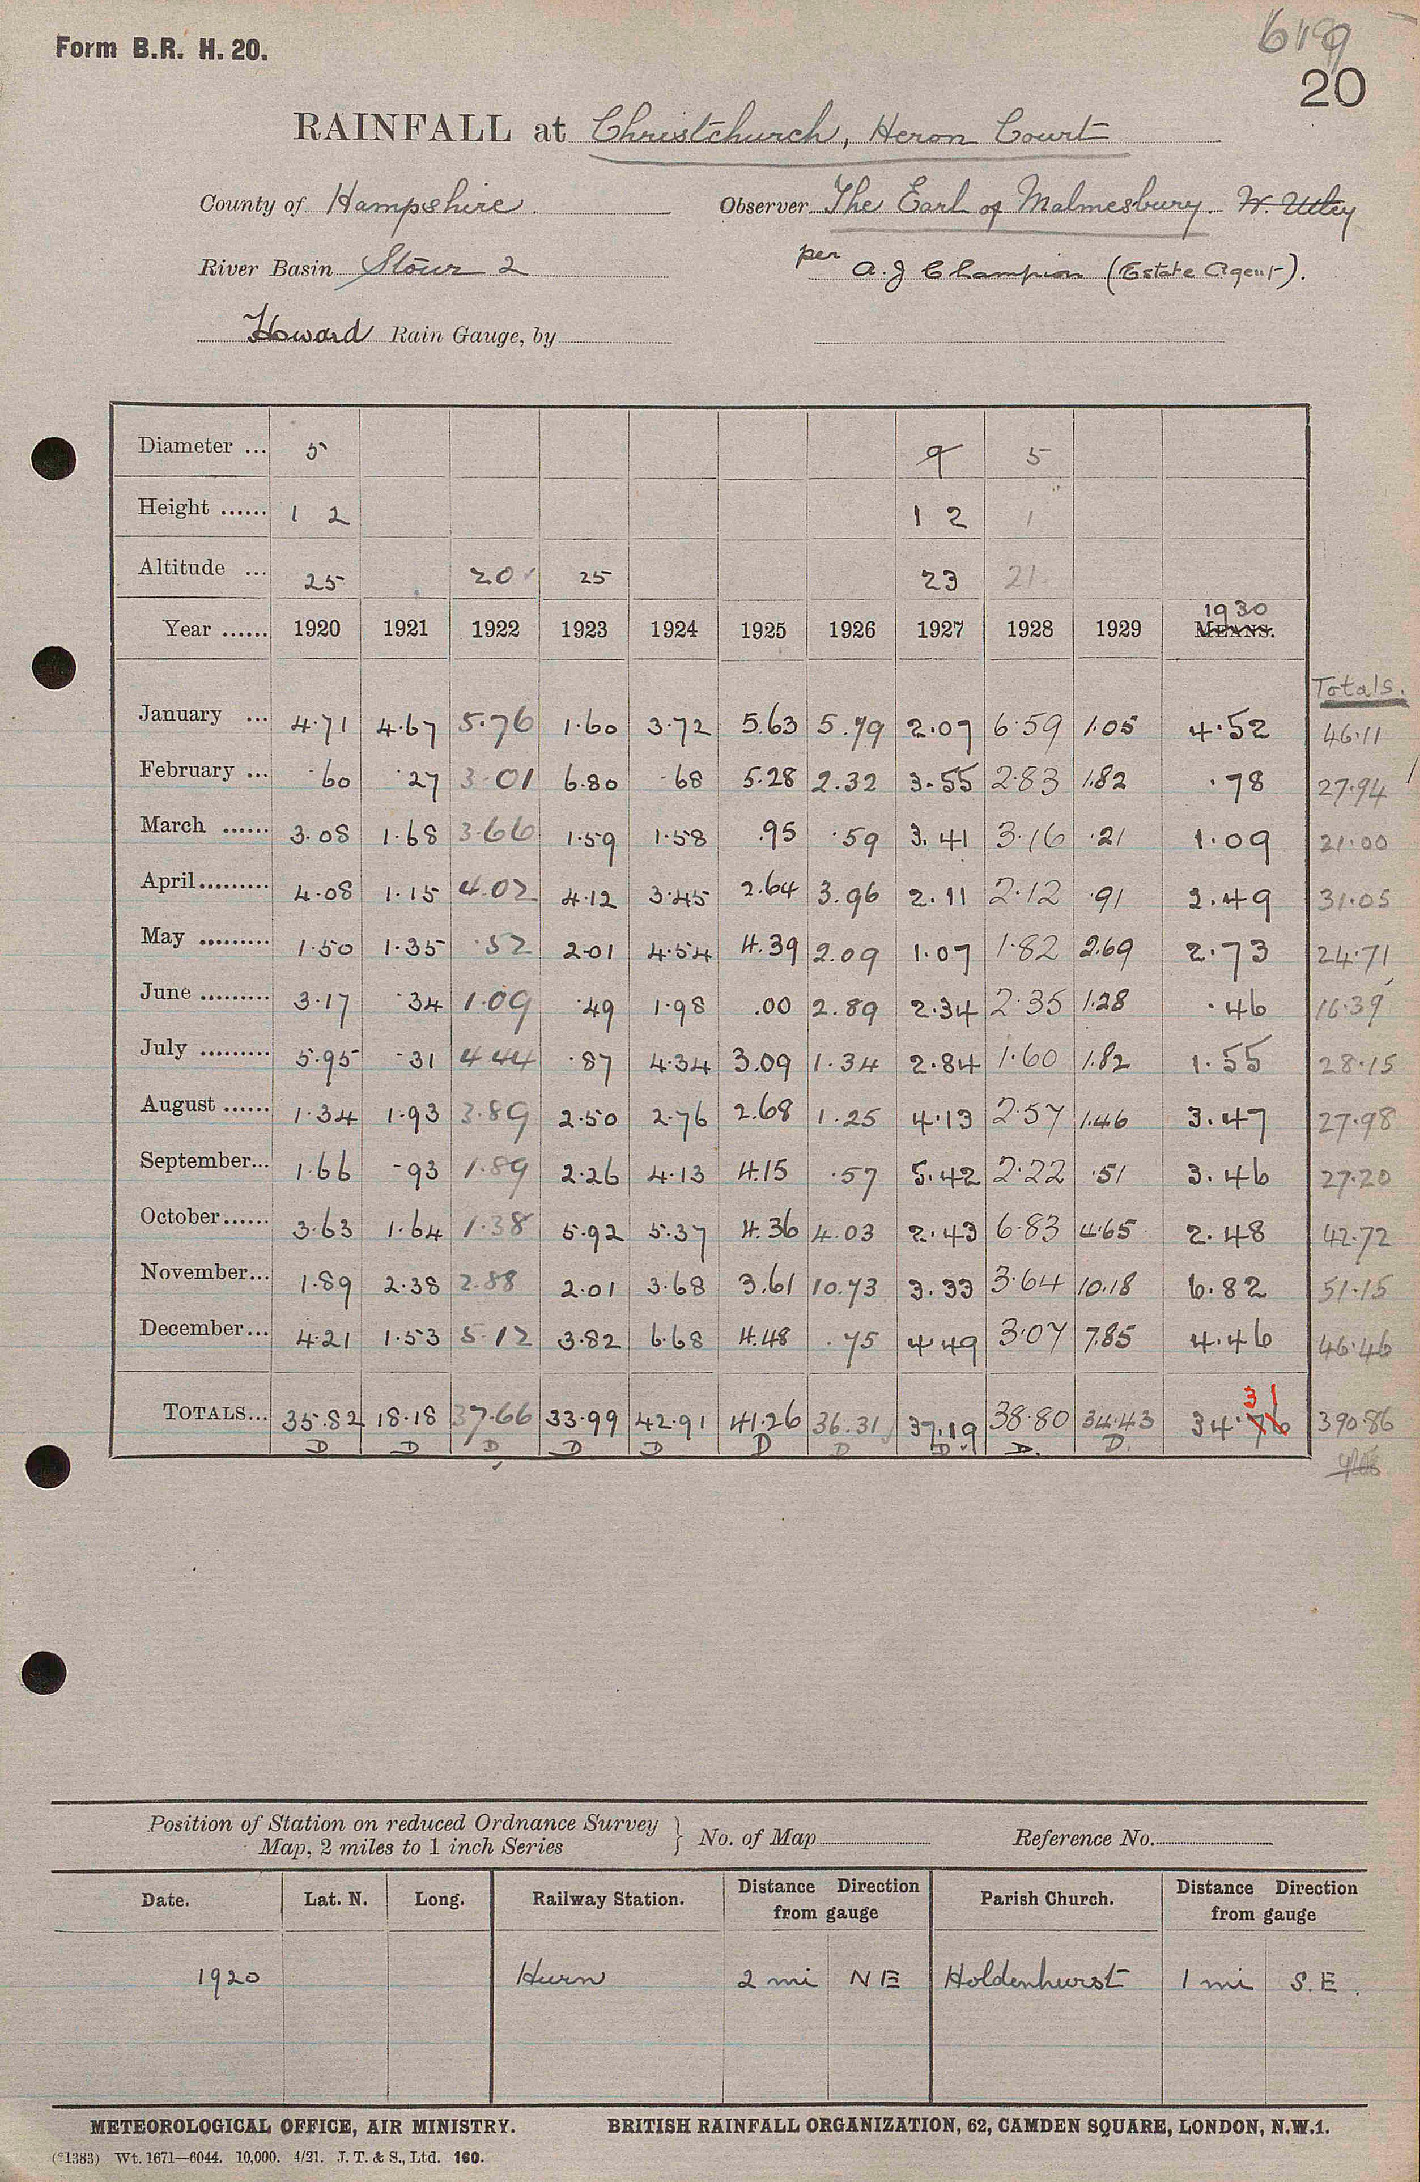 Form B.R. H. 20.
6199
20
RAINFALL at Christchurch, Heron Court
County of Hampshire Observer The Earl of Malmesbury. W. Utley
River Basin Stour 2 per A. J Champion (Estate Agent).
Howard Rain Gauge, by
Diameter ... 5 9 5
Height ...... 1 2 1 2 1
Altitude ... 25 20 25 23 21
1930
Year ...... 1920 1921 1922 1923 1924 1925 1926 1927 1928 1929 MEANS.
Totals.
January ... 4.71 4.67 5.76 1.60 3.72 5.63 5.79 2.07 6.59 1.05 4.52 46.11
February ... .60 .27 3.01 6.80 .68 5.28 2.32 3.55 2.83 1.82 .78 27.94
March ...... 3.08 1.68 3.66 1.59 1.58 .95 .59 3.41 3.16 .21 1.09 21.00
April......... 4.08 1.15 4.02 4.12 3.45 2.64 3.96 2.11 2.12 .91 2.49 31.05
May ......... 1.50 1.35 .52 2.01 4.54 4.39 2.09 1.07 1.82 2.69 2.73 24.71
June ......... 3.17 .34 1.09 .49 1.98 .00 2.89 2.34 2.35 1.28 .46 16.39
July ......... 5.95 .31 4.44 .87 4.34 3.09 1.34 2.84 1.60 1.82 1.55 28.15
August ...... 1.34 1.93 3.89 2.50 2.76 2.68 1.25 4.13 2.57 1.46 3.47 27.98
September... 1.66 .93 1.89 2.26 4.13 4.15 .57 5.42 2.22 .51 3.46 27.20
October...... 3.63 1.64 1.38 5.92 5.37 4.36 4.03 2.43 6.83 4.65 2.48 42.72
November... 1.89 2.38 2.88 2.01 3.68 3.61 10.73 3.33 3.64 10.18 6.82 51.15
December... 4.21 1.53 5.12 3.82 6.68 4.48 .75 4.49 3.07 7.85 4.46 46.46
31
TOTALS... 35.82 18.18 37.66 33.99 42.91 41.26 36.31 37.19 38.80 34.43 34.76 390.86
D D D D D D D D D. D.
Position of Station on reduced Ordnance Survey
Map, 2 miles to 1 inch Series } No. of Map Reference No.
Date. Lat. N. Long. Railway Station. Distance Direction from gauge Parish Church. Distance Direction from gauge
1920 Hurn 2 mi NE Holdenhurst 1 mi S.E.
METEOROLOGICAL OFFICE, AIR MINISTRY. BRITISH RAINFALL ORGANIZATION, 62, CAMDEN SQUARE, LONDON, N.W.1.
(*1383) Wt. 1671—6044. 10,000. 4/21. J. T. & S., Ltd. 160.